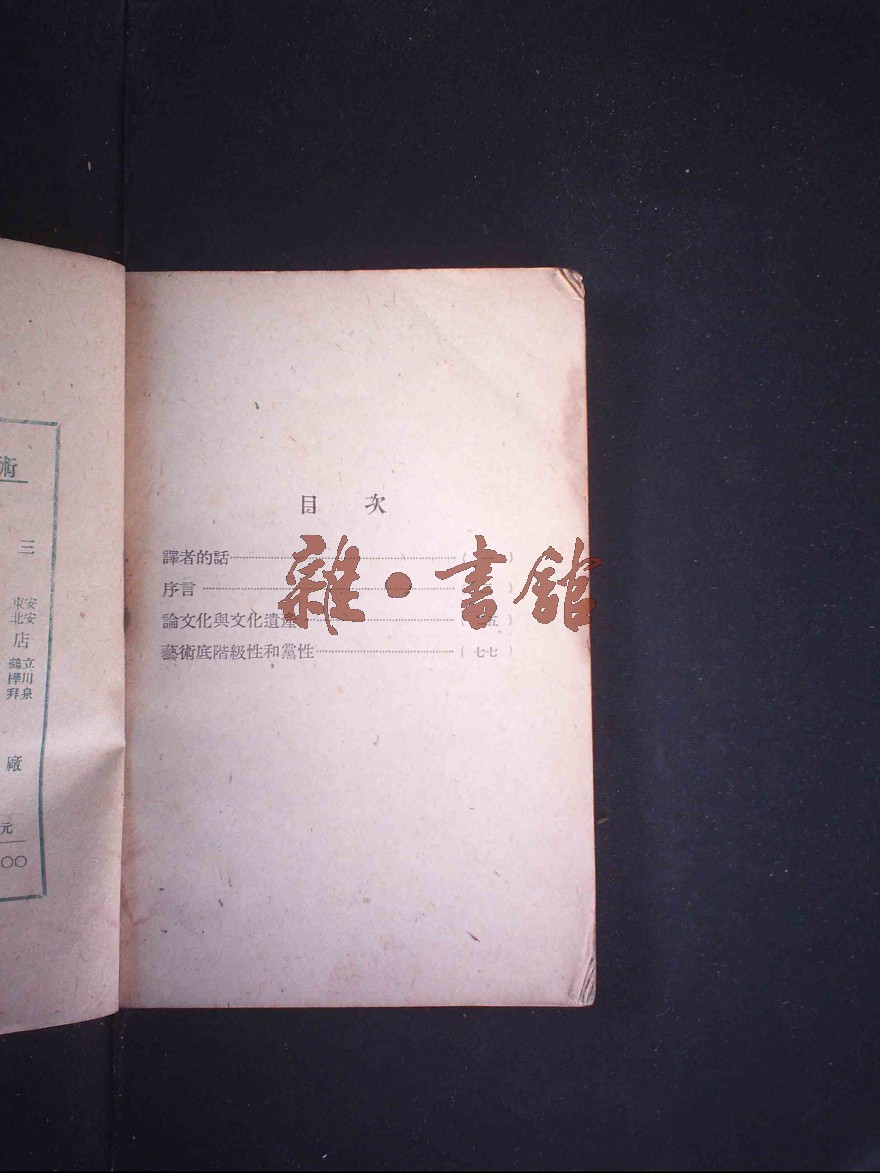 目 次
譯者的話 ( )
序言 )
論文化與文化遺產 五 )
藝術底階級性和黨性 ( 七七 )
雜・書館
術
三
東安
北安
店
鶴立
樺川
拜泉
廠
元
00